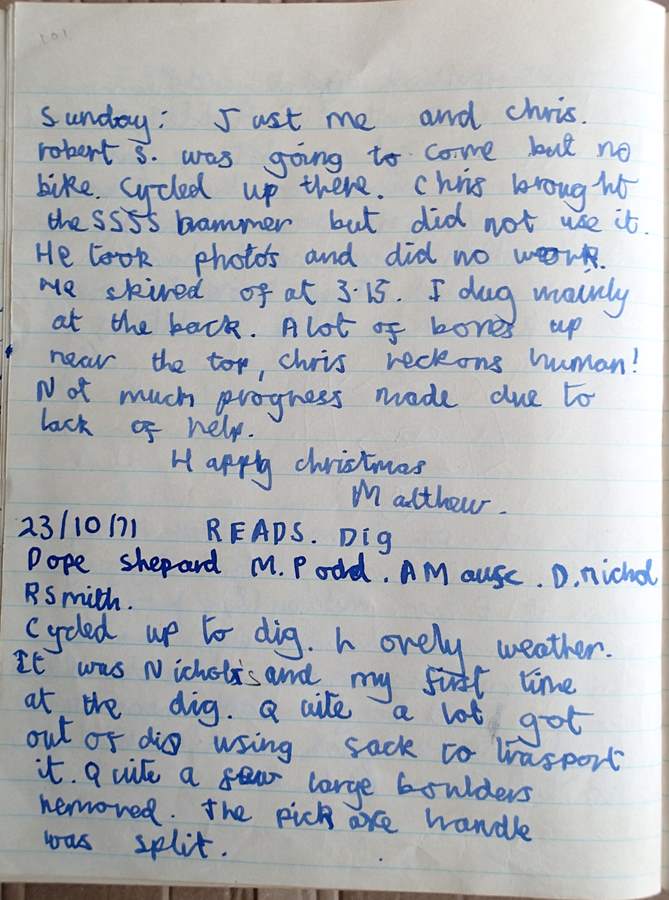 101
Sunday: Just me and chris.
robert S. was going to come but no
bike. Cycled up there. Chris brought
the SSSS hammer but did not use it.
He took photos and did no work.
He skived of at 3.15. I dug mainly
at the back. A lot of bones up
near the top, chris reckons human!
Not much progress made due to
lack of help.
Happy christmas
Matthew.
23/10/71 READS. Dig
Dope shepard M. Podd. A Mause. D. nichol
R Smith.
Cycled up to dig. Lovely weather.
It was Nichols's and my first time
at the dig. Quite a lot got
out of dig using sack to trasport
it. Quite a few large boulders
removed. The pick axe handle
was split.